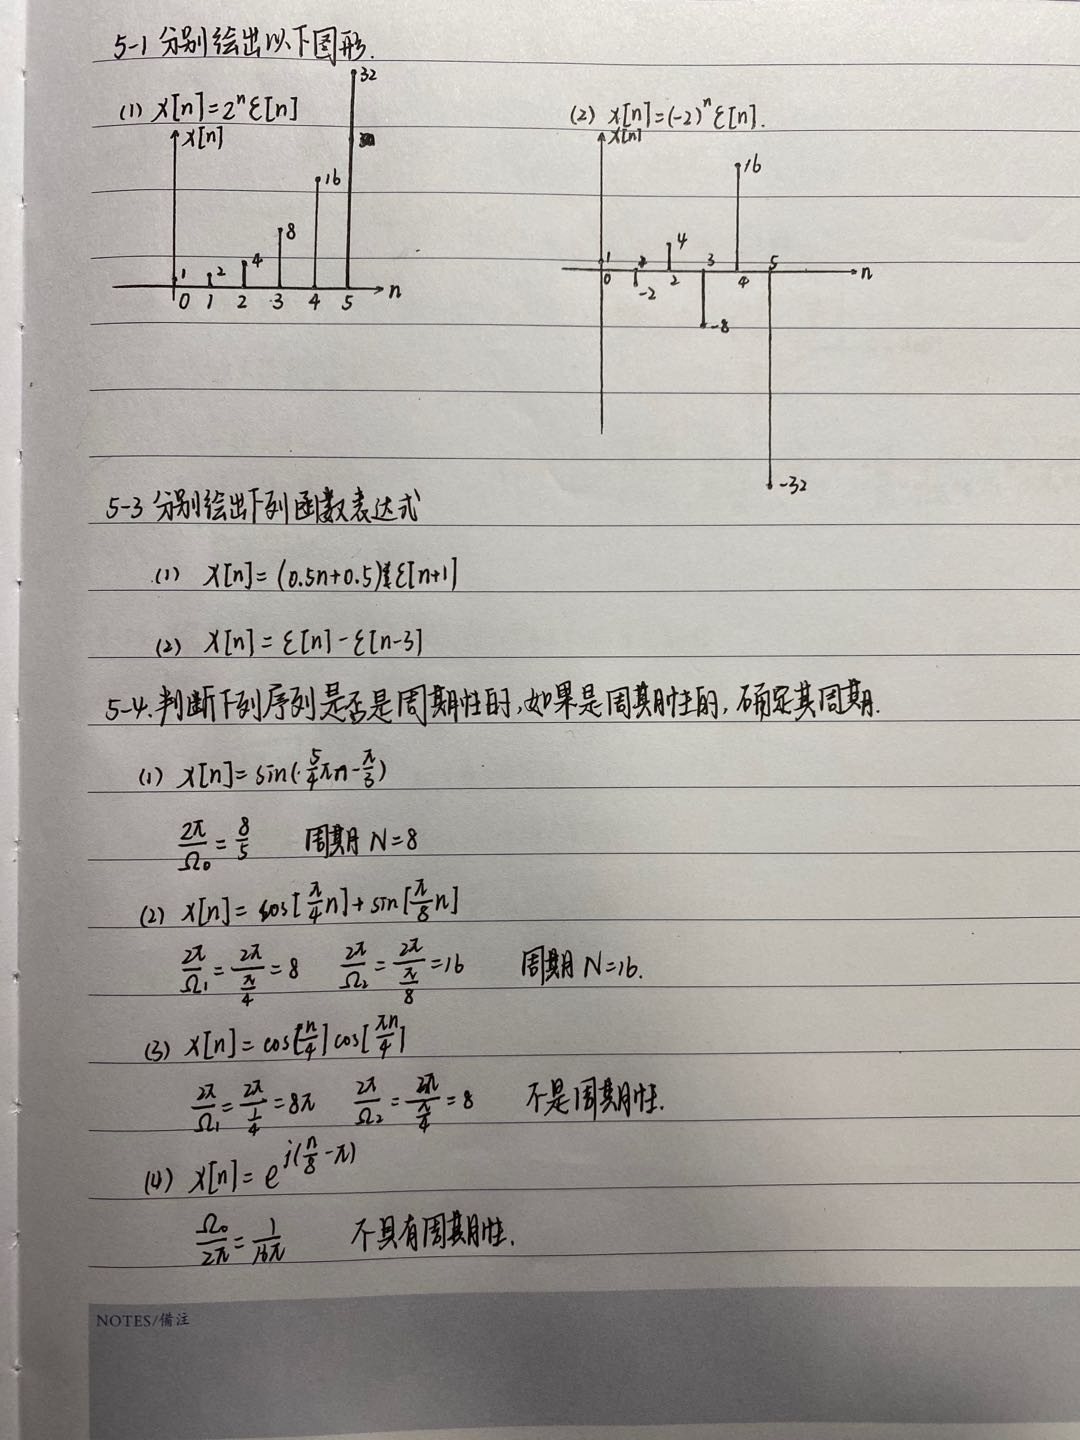 5-1 分别绘出以下图形.
(1) x[n]=2ⁿε[n]
x[n]
1 2 4 8 16 32
0 1 2 3 4 5 n
(2) x[n]=(-2)ⁿε[n].
x[n]
1 -2 4 -8 16 -32
0 2 3 4 5 n
5-3 分别绘出下列函数表达式
(1) x[n]=(0.5n+0.5)ε[n+1]
(2) x[n]=ε[n]-ε[n-3]
5-4.判断下列序列是否是周期性的,如果是周期性的,确定其周期.
(1) x[n]=sin(5/4πn-π/3)
2π/Ω₀=8/5 周期 N=8
(2) x[n]=cos[π/4n]+sin[π/8n]
2π/Ω₁=2π/(π/4)=8 2π/Ω₂=2π/(π/8)=16 周期 N=16.
(3) x[n]=cos[n/4]cos[πn/4]
2π/Ω₁=2π/(1/4)=8π 2π/Ω₂=2π/(π/4)=8 不是周期性.
(4) x[n]=e^{j(n/8-π)}
Ω₀/2π=1/16π 不具有周期性.
NOTES/備注